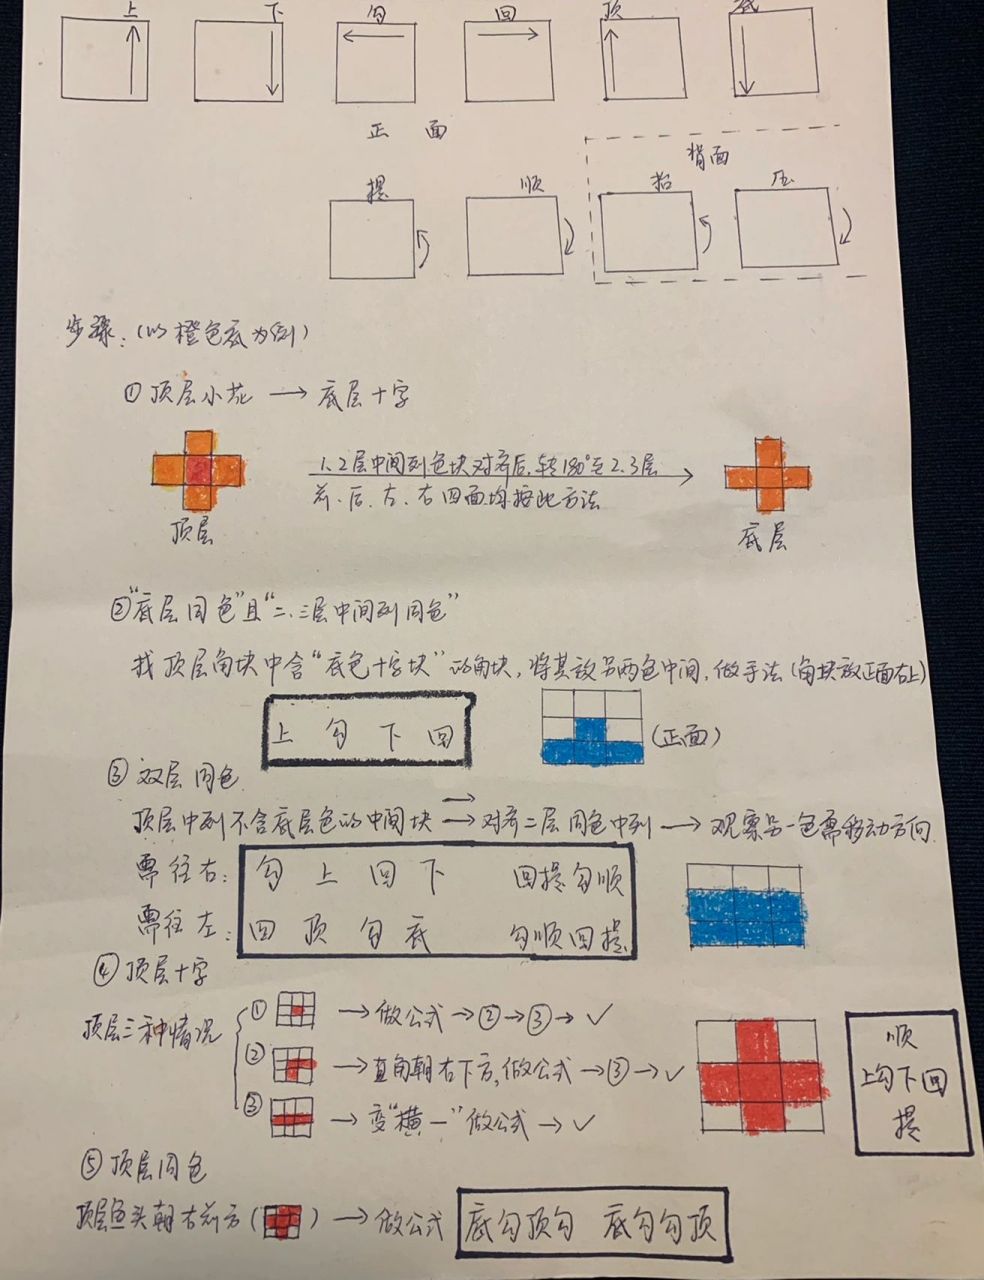 上 下 勾 回 顶 底
正面
背面
提 顺 抬 压
步骤:(以橙色底为例)
①顶层小花 → 底层十字
1.2层中间列色块对齐后,转180°至2.3层
前、后、左、右四面均按此方法
顶层
底层
②"底层同色"且"二、三层中间列同色"
找顶层角块中含"底色十字块"的角块,将其放另两色中间,做手法(角块放正面右上)
上勾下回
(正面)
③双层同色
顶层中列不含底层色的中间块 → 对齐二层同色中列 → 观察另一色需移动方向.
需往右: 勾上回下 回提勾顺
需往左: 回顶勾底 勾顺回提
④顶层十字
顶层三种情况
① → 做公式 → ② → ③ → ✓
② → 直角朝右下方,做公式 → ③ → ✓
③ → 变"横一"做公式 → ✓
顺
上勾下回
提
⑤顶层同色
顶层鱼头朝右前方( ) → 做公式 底勾顶勾 底勾勾顶